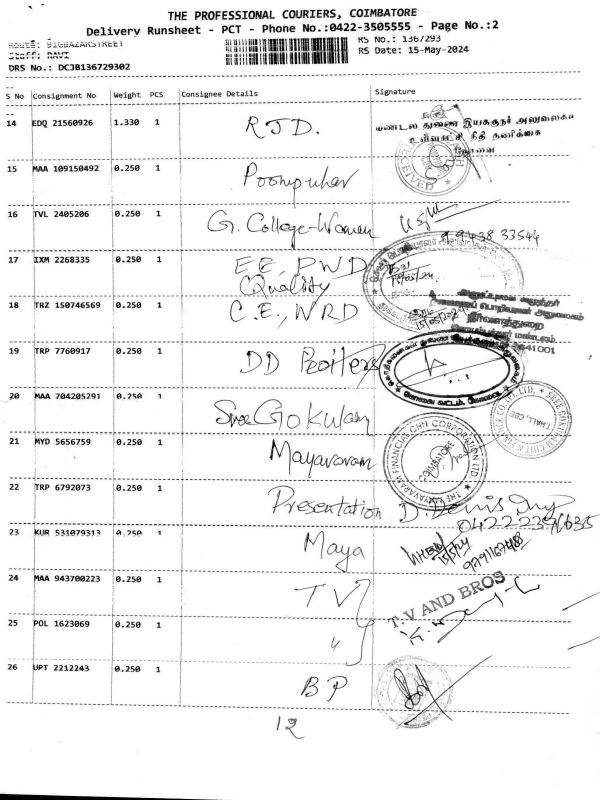 THE PROFESSIONAL COURIERS, COIMBATORE
Delivery Runsheet - PCT - Phone No.:0422-3505555 - Page No.:2
Route: BIGBAZARSTREET
RS No.: 1367293
Staff: RAVI
RS Date: 15-May-2024
DRS No.: DCJB136729302
S No Consignment No Weight PCS Consignee Details Signature
14 EDQ 21560926 1.330 1 RJD.
மண்டல துணை இயக்குநர் அலுவலகம்
உள்ளாட்சி நிதி தணிக்கை
கோவை
RECEIVED
15 MAA 109150492 0.250 1 Poompuhar
16 TVL 2405206 0.250 1 G. College-Women
99438 33544
17 IXM 2268335 0.250 1 EE, PWD
Quality
15/05/24
18 TRZ 150746569 0.250 1 C.E., WRD
641001
19 TRP 7760917 0.250 1 DD
20 MAA 704205291 0.250 1 Sree Gokulam
21 MYD 5656759 0.250 1 Mayavaram
THE MAYAVARAM FINANCIAL CHIT CORPORATION LTD
COIMBATORE
22 TRP 6792073 0.250 1 Presentation
23 KUR 531079313 0.250 1 Maya
15/5/24
24 MAA 943700223 0.250 1 TV
T.V AND BROS
25 POL 1623069 0.250 1 "
26 UPT 2212243 0.250 1 BP
12